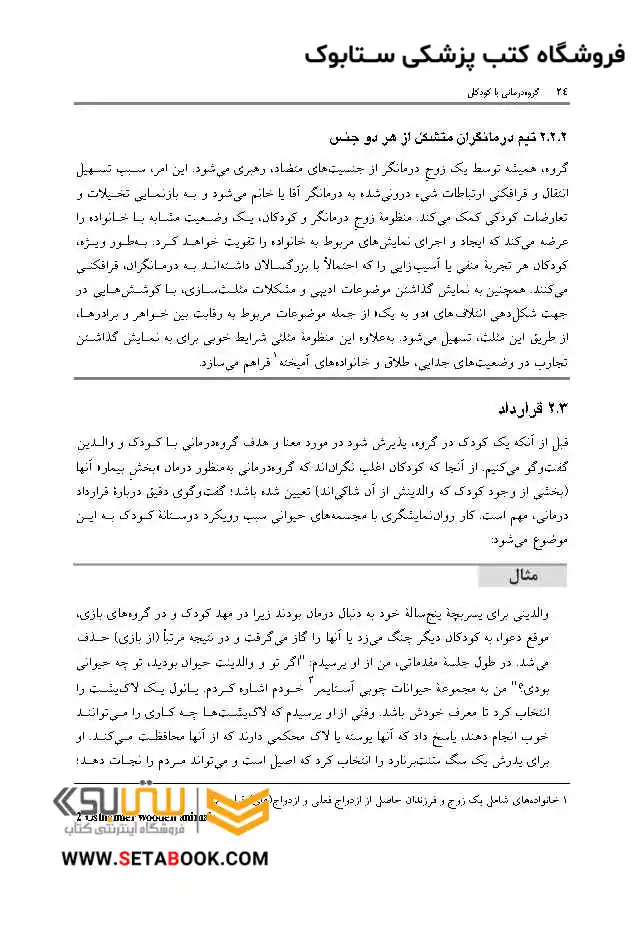 فروشگاه کتب پزشکی ستابوک
۲۴ گروه‌درمانی با کودکان
۲.۲.۲ تیم درمانگران متشکل از هر دو جنس
گروه، همیشه توسط یک زوج درمانگر از جنسیت‌های متضاد، رهبری می‌شود. این امر، سبب تسهیل
انتقال و فرافکنی ارتباطات شیء درونی‌شده به درمانگر آقا یا خانم می‌شود و به بازنمایی تخیلات و
تعارضات کودکی کمک می‌کند. منظومهٔ زوج درمانگر و کودکان، یک وضعیت مشابه با خانواده را
عرضه می‌کند که ایجاد و اجرای نمایش‌های مربوط به خانواده را تقویت خواهد کرد. به‌طور ویژه،
کودکان هر تجربهٔ منفی یا آسیب‌زایی را که احتمالاً با بزرگسالان داشته‌اند به درمانگران، فرافکنی
می‌کنند. همچنین به نمایش گذاشتن موضوعات ادیپی و مشکلات مثلث‌سازی، با کوشش‌هایی در
جهت شکل‌دهی ائتلاف‌های «دو به یک» از جمله موضوعات مربوط به رقابت بین خواهر و برادرها،
از طریق این مثلث، تسهیل می‌شود. به‌علاوه این منظومهٔ مثلثی شرایط خوبی برای به نمایش گذاشتن
تجارب در وضعیت‌های جدایی، طلاق و خانواده‌های آمیخته۱ فراهم می‌سازد.
۲.۳ قرارداد
قبل از آنکه یک کودک در گروه، پذیرش شود در مورد معنا و هدف گروه‌درمانی با کودک و والدین
گفت‌وگو می‌کنیم. از آنجا که کودکان اغلب نگران‌اند که گروه‌درمانی به‌منظور درمان «بخش بیمار» آنها
(بخشی از وجود کودک که والدینش از آن شاکی‌اند) تعیین شده باشد؛ گفت‌وگوی دقیق دربارهٔ قرارداد
درمانی، مهم است. کار روان‌نمایشگری با مجسمه‌های حیوانی سبب رویکرد دوستانهٔ کودک به این
موضوع می‌شود:
مثال
والدینی برای پسربچهٔ پنج‌سالهٔ خود به دنبال درمان بودند زیرا در مهد کودک و در گروه‌های بازی،
موقع دعوا، به کودکان دیگر چنگ می‌زد یا آنها را گاز می‌گرفت و در نتیجه مرتباً (از بازی) حذف
می‌شد. در طول جلسهٔ مقدماتی، من از او پرسیدم: "اگر تو و والدینت حیوان بودید، تو چه حیوانی
بودی؟" من به مجموعهٔ حیوانات چوبی آستایمر۲ خودم اشاره کردم. پائول یک لاک‌پشت را
انتخاب کرد تا معرف خودش باشد. وقتی از او پرسیدم که لاک‌پشت‌ها چه کاری را می‌توانند
خوب انجام دهند، پاسخ داد که آنها پوسته یا لاک محکمی دارند که از آنها محافظت می‌کند. او
برای پدرش یک سگ سنت‌برنارد را انتخاب کرد که اصیل است و می‌تواند مردم را نجات دهد؛
۱ خانواده‌های شامل یک زوج و فرزندان حاصل از ازدواج فعلی و ازدواج(های)
2 Ostheimer wooden animal
ستابوک
فروشگاه اینترنتی کتاب
WWW.SETABOOK.COM